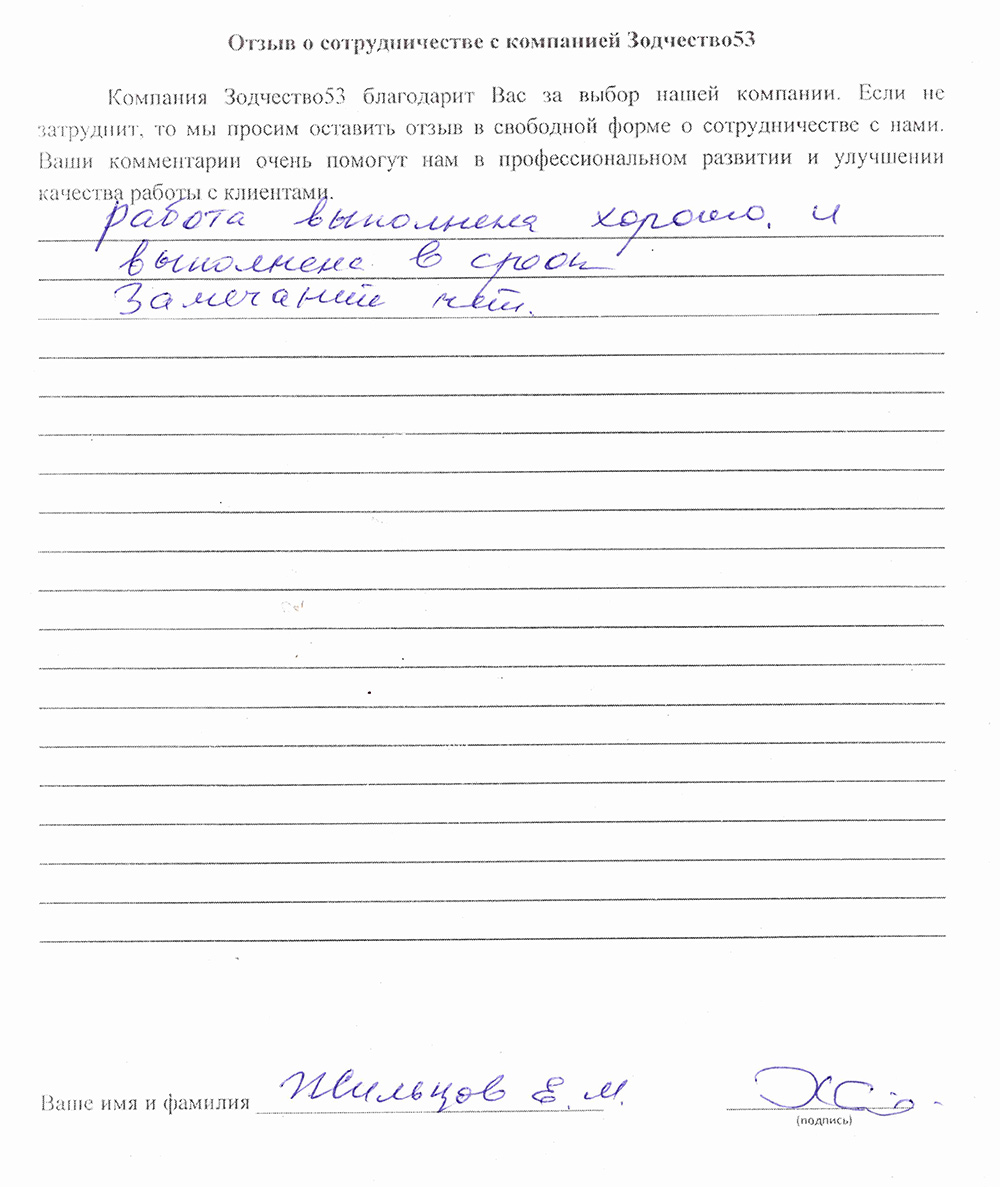 Отзыв о сотрудничестве с компанией Зодчество53
Компания Зодчество53 благодарит Вас за выбор нашей компании. Если не
затруднит, то мы просим оставить отзыв в свободной форме о сотрудничестве с нами.
Ваши комментарии очень помогут нам в профессиональном развитии и улучшении
качества работы с клиентами.
Работа выполнена хорошо. и
выполнена в срок
Замечаний нет.
Ваше имя и фамилия Жильцов Е.М.
(подпись)